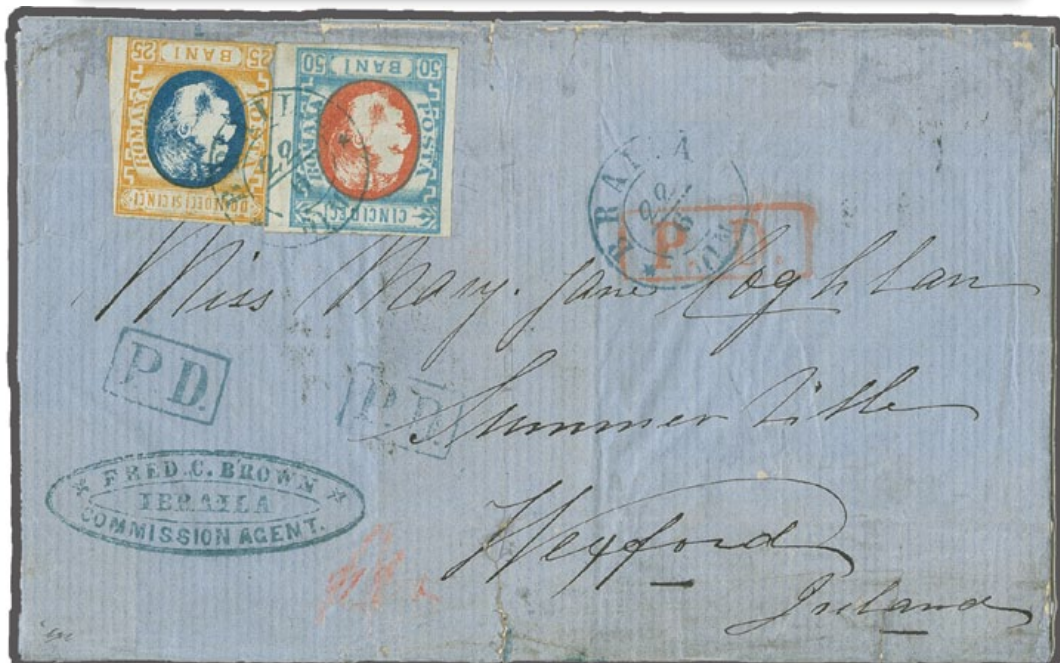 25 BANI 25
POSTA
ROMANA
DOUEDECI SI CINCI
50 BANI 50
POSTA
ROMANA
CINCIDECI
BRAILA
22/6
IUN
P.D.
Miss Mary Jane Coghlan
P.D.
P.D.
Summer Ville
FRED. C. BROWN
IBRAILA
COMMISSION AGENT.
Wexford
Ireland